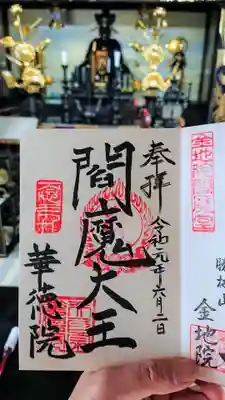 奉拝
令和元年六月二日
閻魔大王
華徳院
勝林山
金地院